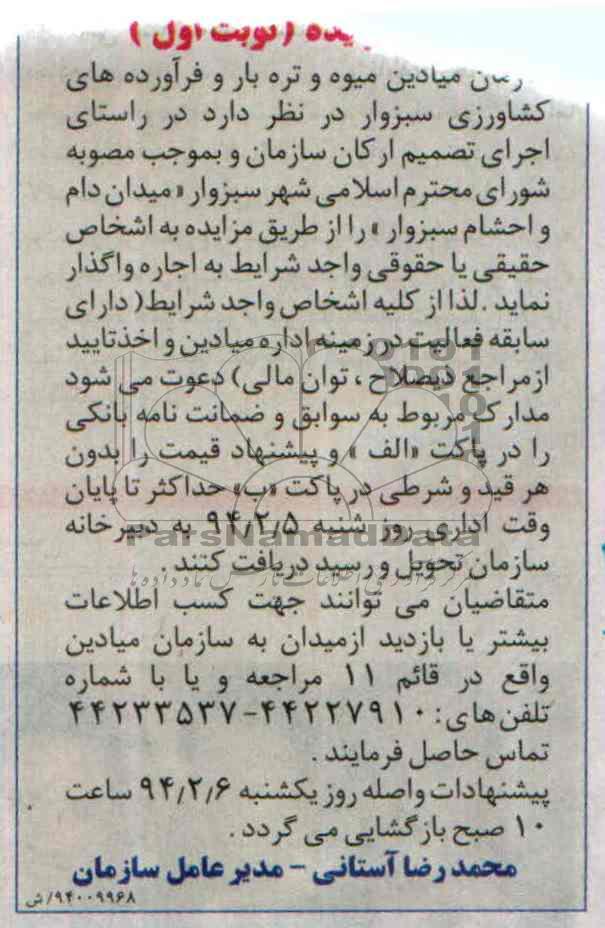 (نوبت اول)
میادین میوه و تره بار و فرآورده های
کشاورزی سبزوار در نظر دارد در راستای
اجرای تصمیم ارکان سازمان و بموجب مصوبه
شورای محترم اسلامی شهر سبزوار «میدان دام
و احشام سبزوار» را از طریق مزایده به اشخاص
حقیقی یا حقوقی واجد شرایط به اجاره واگذار
نماید. لذا از کلیه اشخاص واجد شرایط (دارای
سابقه فعالیت در زمینه اداره میادین و اخذ تایید
از مراجع ذیصلاح، توان مالی) دعوت می شود
مدارک مربوط به سوابق و ضمانت نامه بانکی
را در پاکت «الف» و پیشنهاد قیمت را بدون
هر قید و شرطی در پاکت «ب» حداکثر تا پایان
وقت اداری روز شنبه ۹۴/۲/۵ به دبیرخانه
ParsNamadData
سازمان تحویل و رسید دریافت کنند.
متقاضیان می توانند جهت کسب اطلاعات
بیشتر یا بازدید از میدان به سازمان میادین
واقع در قائم ۱۱ مراجعه و یا با شماره
تلفن های: ۴۴۲۲۷۹۱۰-۴۴۲۳۳۵۳۷
تماس حاصل فرمایند.
پیشنهادات واصله روز یکشنبه ۹۴/۲/۶ ساعت
۱۰ صبح بازگشایی می گردد.
محمدرضا آستانی - مدیر عامل سازمان
۹۴۰۰۹۹۶۸/ش